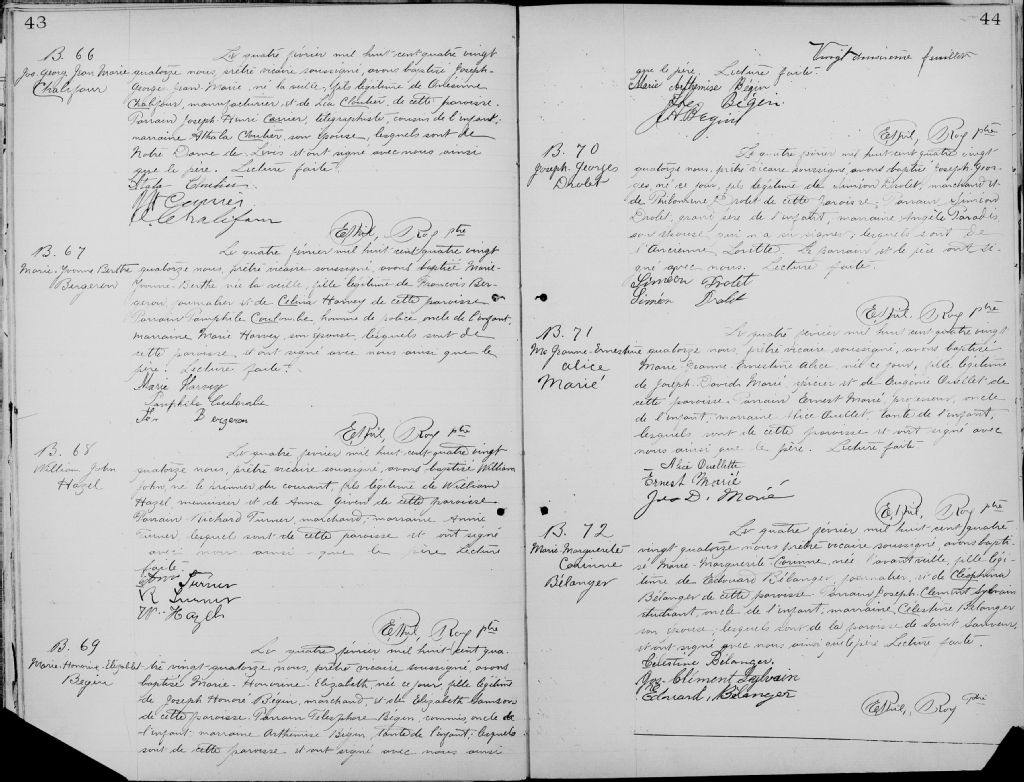 43
B. 66
Jos. Georg. Jean Marie
Chalifour
Le quatre février mil huit-cent quatre vingt
quatorze nous, prêtre vicaire soussigné, avons baptisé Joseph-
Georges Jean Marie, né la veille, fils légitime de
Chalifour, manufacturier et de Léa Cloutier de cette paroisse.
Parrain Joseph Henri Carrier, télégraphiste, cousin de l'enfant,
marraine Cloutier, son épouse, lesquels sont de
Notre Dame de Lévis et ont signé avec nous ainsi
que le père. Lecture faite.
Cloutier
Carrier
Chalifour
Roy ptre
B. 67
Marie-Yvonne Berthe
Bergeron
Le quatre février mil huit-cent quatre vingt
quatorze nous, prêtre vicaire soussigné, avons baptisé Marie
Yvonne Berthe née la veille, fille légitime de François Ber-
geron, journalier et de Harvey de cette paroisse
Parrain Pamphile Coulombe, homme de police, oncle de l'enfant,
marraine Marie Harvey, son épouse lesquels sont de
cette paroisse et ont signé avec nous ainsi que le
père. Lecture faite.
Marie Harvey
Pamphile Coulombe
Bergeron
Roy ptre
B. 68
William John
Hazel
Le quatre février mil huit cent quatre vingt
quatorze nous, prêtre vicaire soussigné, avons baptisé William
John, né le premier du courant, fils légitime de William
Hazel menuisier et de Anna Given de cette paroisse
Parrain Richard Turner, marchand, marraine Annie
Turner lesquels sont de cette paroisse et ont signé
avec nous ainsi que le père Lecture
faite
Turner
R Turner
W. Hazel
Roy ptre
B. 69
Marie-Honorine-Elizabeth
Bégin
Le quatre février mil huit cent qua-
tre vingt-quatorze nous, prêtre vicaire soussigné, avons
baptisé Marie-Honorine-Elizabeth, née ce jour, fille légitime
de Joseph Honoré Bégin, marchand, et de Elizabeth Samson
de cette paroisse. Parrain Télesphore Bégin, commis, oncle de
l'enfant marraine Arthémise Bégin, tante de l'enfant, lesquels
sont de cette paroisse et ont signé avec nous ainsi
44
Vingt troisième feuillet
que le père. Lecture faite.
Marie Arthémise Bégin
Bégin
Bégin
Roy ptre
B. 70
Joseph-Georges
Drolet
Le quatre février mil huit-cent quatre vingt
quatorze, nous, prêtre vicaire soussigné, avons baptisé Joseph-Geor-
ges, né ce jour, fils légitime de Siméon Drolet, marchand et
de Philomène Drolet de cette paroisse; Parrain Siméon
Drolet, grand père de l'enfant, marraine Angèle Paradis
son épouse, qui n'a su signer; lesquels sont de
l'Ancienne Lorette. Le parrain et le père ont si-
gné avec nous. Lecture faite.
Siméon Drolet
Siméon Drolet
Roy ptre
B. 71
Mie Jeanne-Ernestine
Alice
Marié
Le quatre février mil huit cent quatre vingt
quatorze nous, prêtre vicaire soussigné, avons baptisé
Marie Jeanne-Ernestine Alice, née ce jour, fille légitime
de Joseph-David Marié, épicier et de Eugénie Ouellet de
cette paroisse. Parrain Ernest Marié, professeur, oncle
de l'enfant, marraine Alice Ouellet, tante de l'enfant,
lesquels sont de cette paroisse et ont signé avec
nous ainsi que le père. Lecture faite
Alice Ouellette
Ernest Marié
Jos D. Marié
Roy ptre
B. 72
Marie Marguerite
Corinne
Bélanger
Le quatre février mil huit-cent quatre
vingt quatorze nous prêtre vicaire soussigné, avons bapti-
sé Marie-Marguerite-Corinne, née l'avant veille, fille légi-
time de Edouard Bélanger, journalier, et de
Bélanger de cette paroisse Parrain Joseph-Clément Sylvain
étudiant, oncle de l'enfant, marraine, Célestine Bélanger
son épouse; lesquels sont de la paroisse de Saint Sauveur,
et ont signé avec nous ainsi que le père Lecture faite.
Célestine Bélanger.
Jos. Clément Sylvain
Edouard Bélanger
Roy ptre